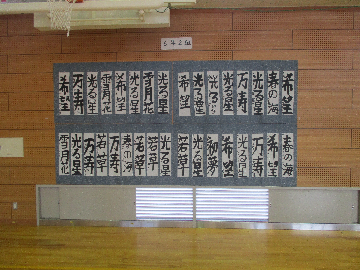 希望
春の海
光る星
万寿
光る星
光る星
光る星
希望
光る星
雪月花
光る星
希望
雪月花
光る星
万寿
希望
春の海
希望
万寿
光る星
希望
初夢
光る星
若草
光る星
若草
若草
春の海
万寿
若草
万寿
光る星
雪月花